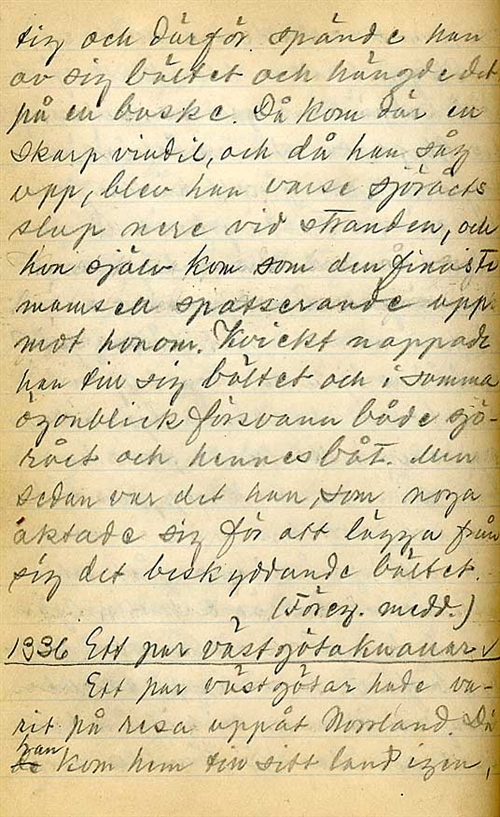 sig och därför spände han
av sig bältet och hängde det
på en buske. Då kom där en
skarp vindil, och då han såg
upp, blev han varse sjöråets
slup nere vid stranden, och
hon själv kom som den finaste
mamsell spatserande upp
mot honom. Kvickt nappade
han till sig bältet och i samma
ögonblick försvann både sjö-
rået och hennes båt. Men
sedan var det han, som noga
aktade sig för att lägga från
sig det beskyddande bältet.
(Föreg. medd.)
1336 Ett par västgötaknallar ✓
Ett par västgötar hade va-
rit på resa uppåt Norrland. Då
kom hem till sitt land igen,